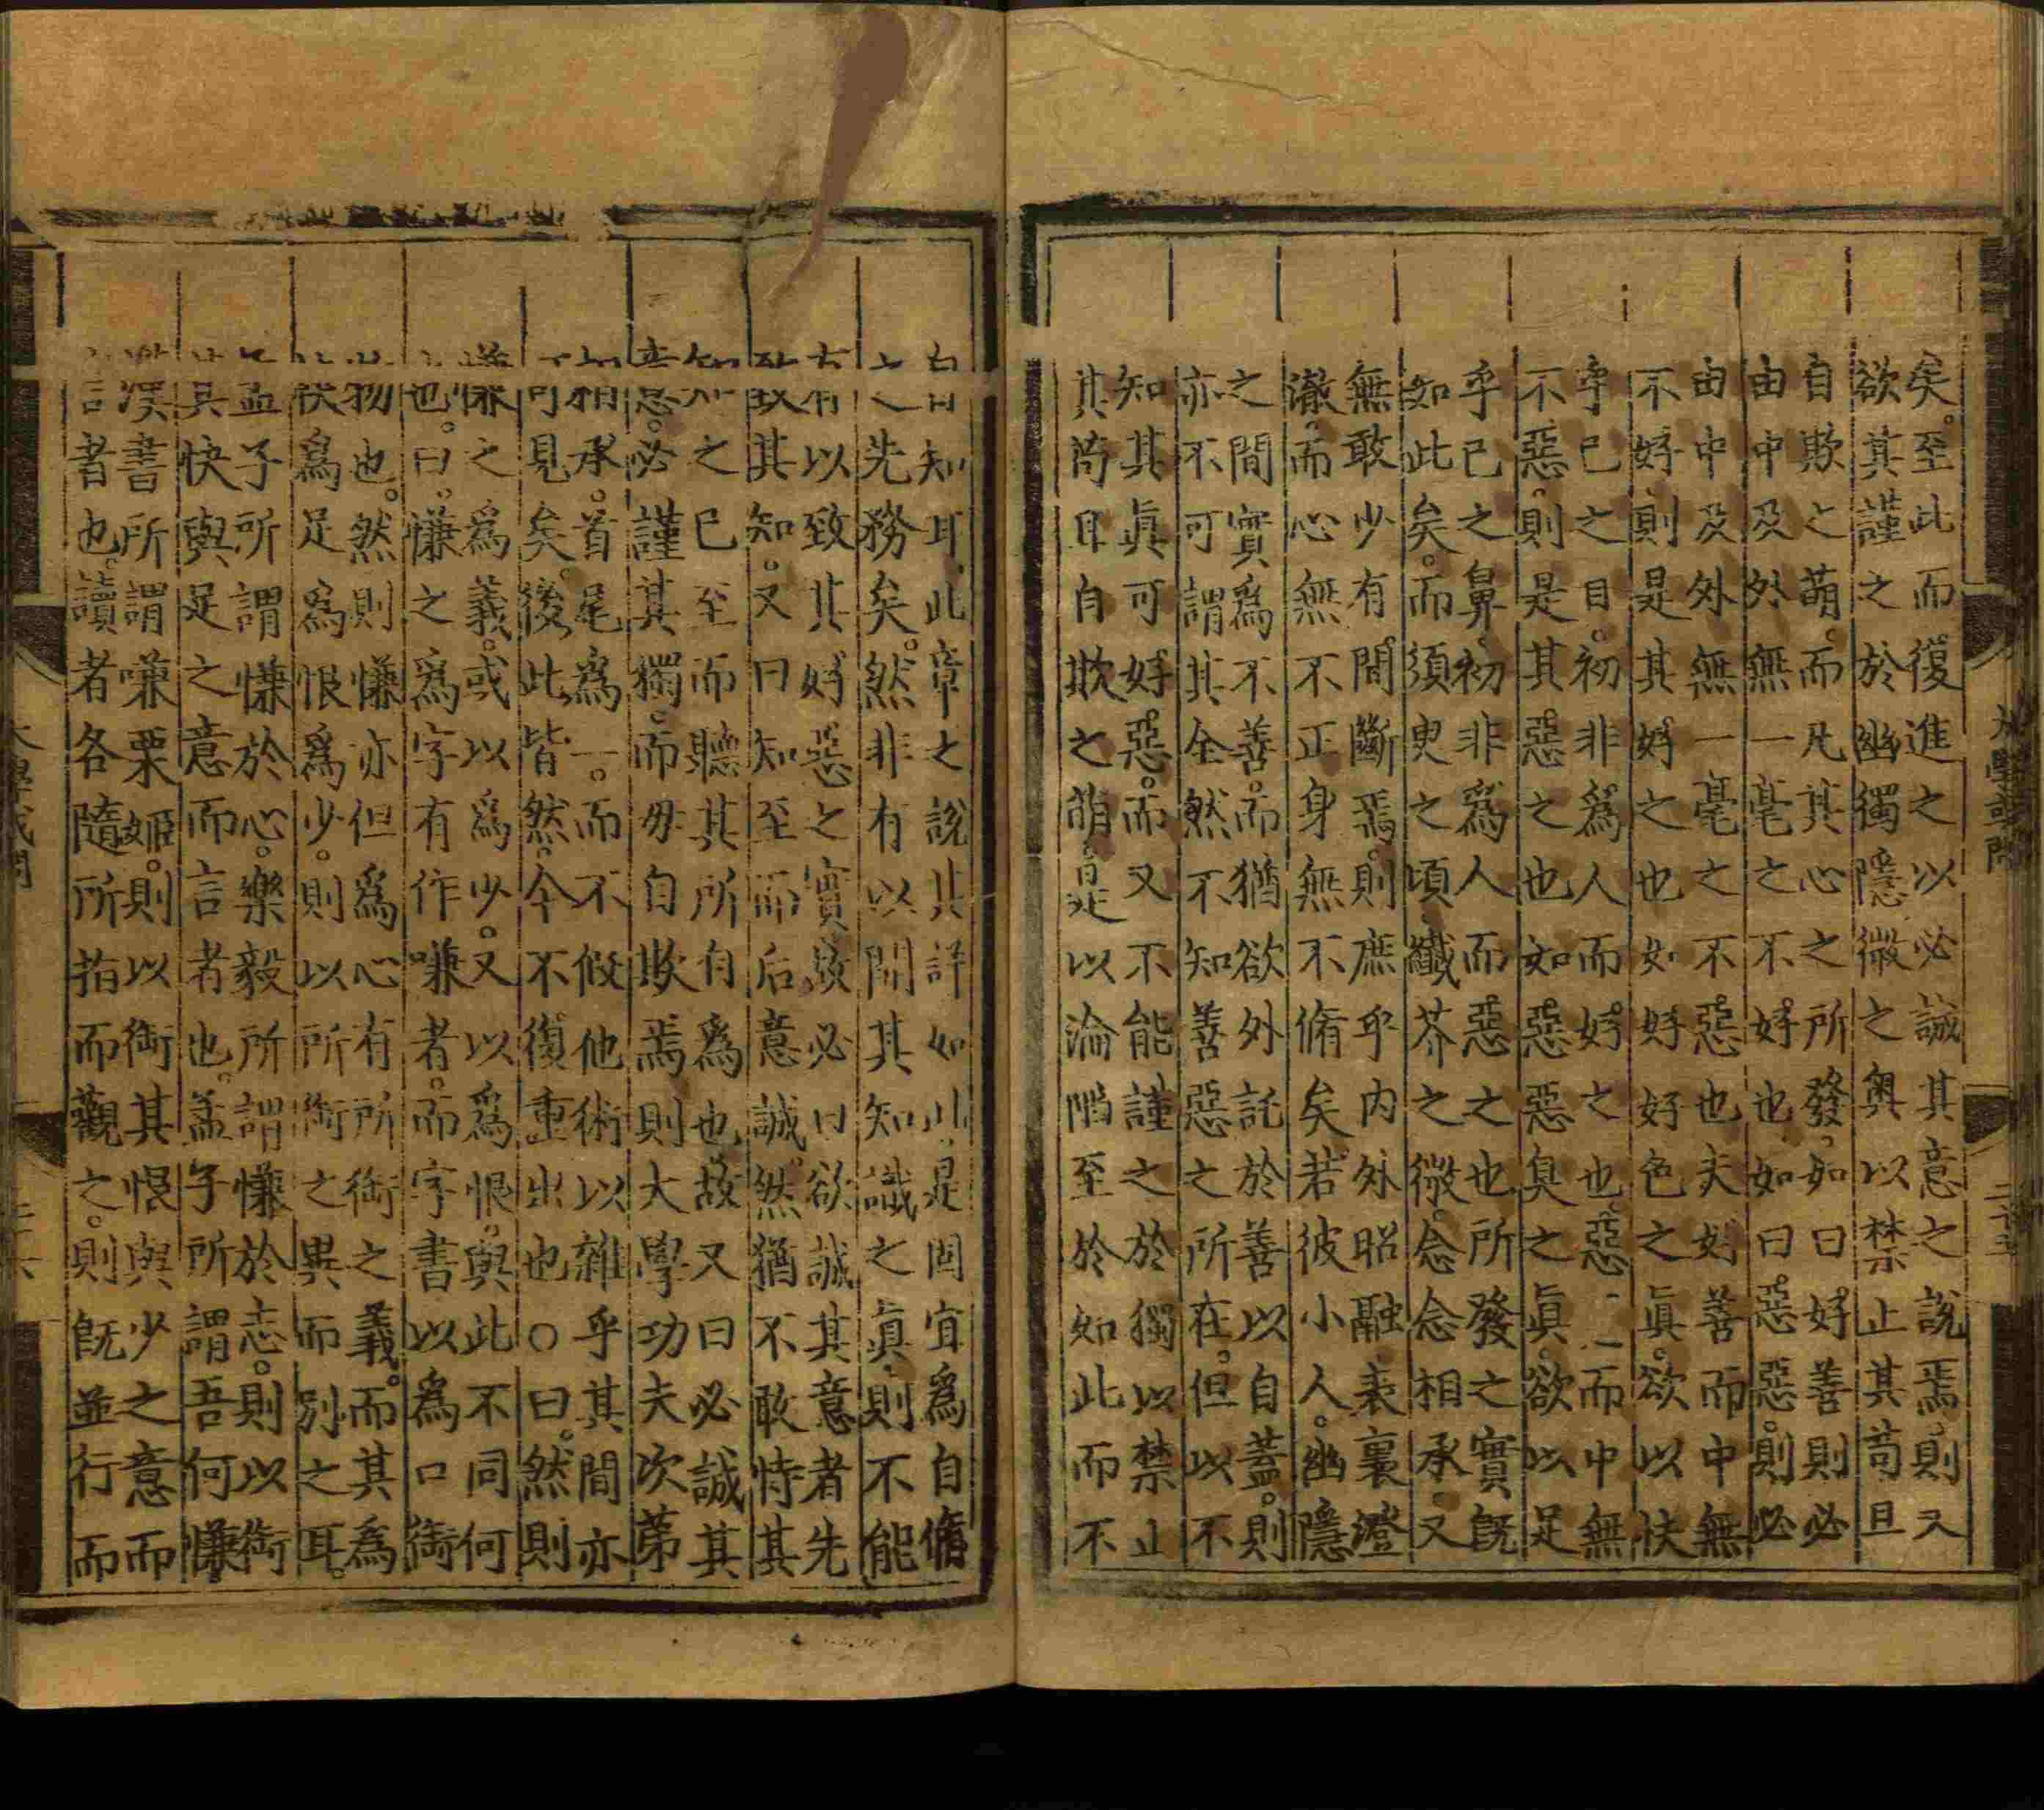 矣。至此而復進之以必誠其意之說焉則又
欲其謹之於幽獨隱微之奧以禁止其苟且
自欺之萌。而凡其心之所發。如曰好善則必
由中及外無一毫之不好也如曰惡惡。則必
由中及外無一毫之不惡也夫好善而中無
不好則是其好之也如好好色之真。欲以快
乎己之目。初非爲人而好之也惡 而中無
不惡。則是其惡之也如惡惡臭之眞。欲以足
乎己之鼻。初非爲人而惡之也所發之實既
如此矣。而須臾之頃纖芥之微。念念相承。又
無敢少有間斷焉。則庶乎內外昭融表裏澄
澈。而心無不正身無不脩矣若彼小人。幽隱
之間實爲不善。而猶欲外託於善以自蓋。則
亦不可謂其全然不知善惡之所在。但以不
知其眞可好惡。而又不能謹之於獨以禁止
其苟且自欺之萌是以淪陷至於如此而不
自知耳。此章之說其詳如此是固宜爲自脩
之先務矣。然非有以開其知識之眞。則不能
有以致其好惡之實故必曰欲誠其意者先
致其知。又曰知至而后意誠然猶不敢恃其
知之已至而聽其所自爲也故又曰必誠其
意。必謹其獨。而毋自欺焉則大學功夫次第
相承。首尾爲一。而不假他術以雜乎其間亦
可見矣。後此皆然。今不復重出也○曰。然則
慊之爲義。或以爲少。又以爲恨。與此不同何
也。曰。慊之爲字有作嗛者。而字書以爲口銜
物也。然則慊亦但爲心有所銜之義。而其爲
快爲足爲恨爲少。則以所銜之異而別之耳。
孟子所謂慊於心。樂毅所謂慊於志。則以銜
其快與足之意而言者也。孟子所謂吾何慊
漢書所謂嗛栗姬。則以銜其恨與少之意而
言者也。讀者各隨所指而觀之。則旣並行而